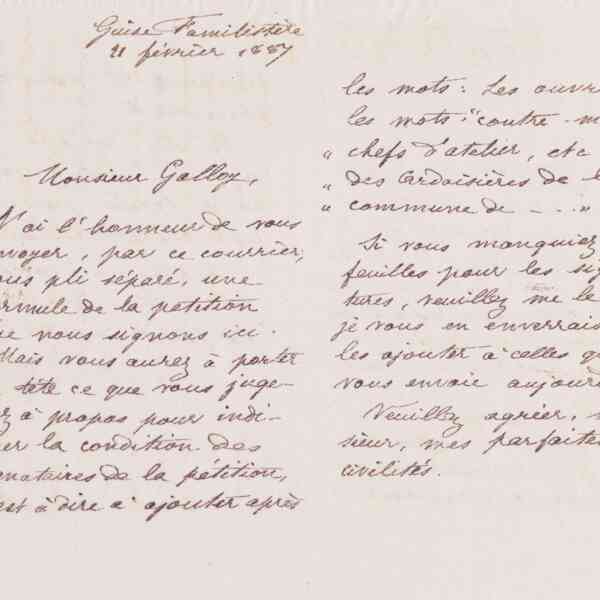 Guise Familistère
21 février 1887
Monsieur Galloy,
J'ai l'honneur de vous
nvoyer, par ce courrier,
ous pli séparé, une
ormule de la pétition
ue nous signons ici.
Mais vous aurez à porter
tête ce que vous juge-
ez à propos pour indi-
uer la condition des
gnataires de la pétition,
'est à dire à ajouter après
les mots: Les ouvri
les mots: "contre-m
" chefs d'atelier, etc
" des Ardoisières de l
" commune de - - . "
Si vous manquiez
feuilles pour les sig
tures, veuillez me le
je vous en enverrais
les ajouter à celles qu
vous envoie aujourd
Veuillez agréer,
sieur, mes parfaites
civilités.